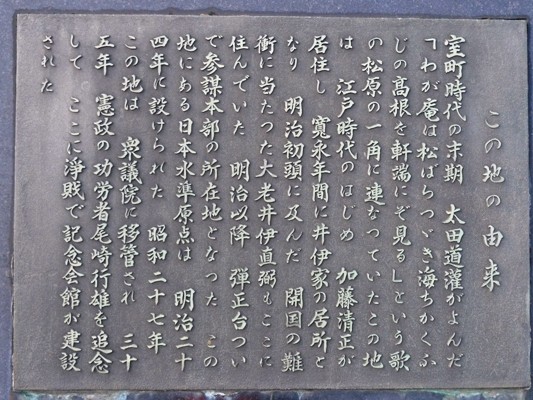 この地の由来
室町時代の末期　太田道灌がよんだ
「わが庵は松ばらつゞき海ちかくふ
じの高根を軒端にぞ見る」という歌
の松原の一角に連なつていたこの地
は　江戸時代のはじめ　加藤清正が
居住し　寛永年間に井伊家の居所と
なり　明治初頭に及んだ　開国の難
衝に当たつた大老井伊直弼もここに
住んでいた　明治以降　弾正台つい
で参謀本部の所在地となつた　この
地にある日本水準原点は　明治二十
四年に設けられた　昭和二十七年
この地は　衆議院に移管され　三十
五年　憲政の功労者尾崎行雄を追念
して　ここに浄財で記念会館が建設
された